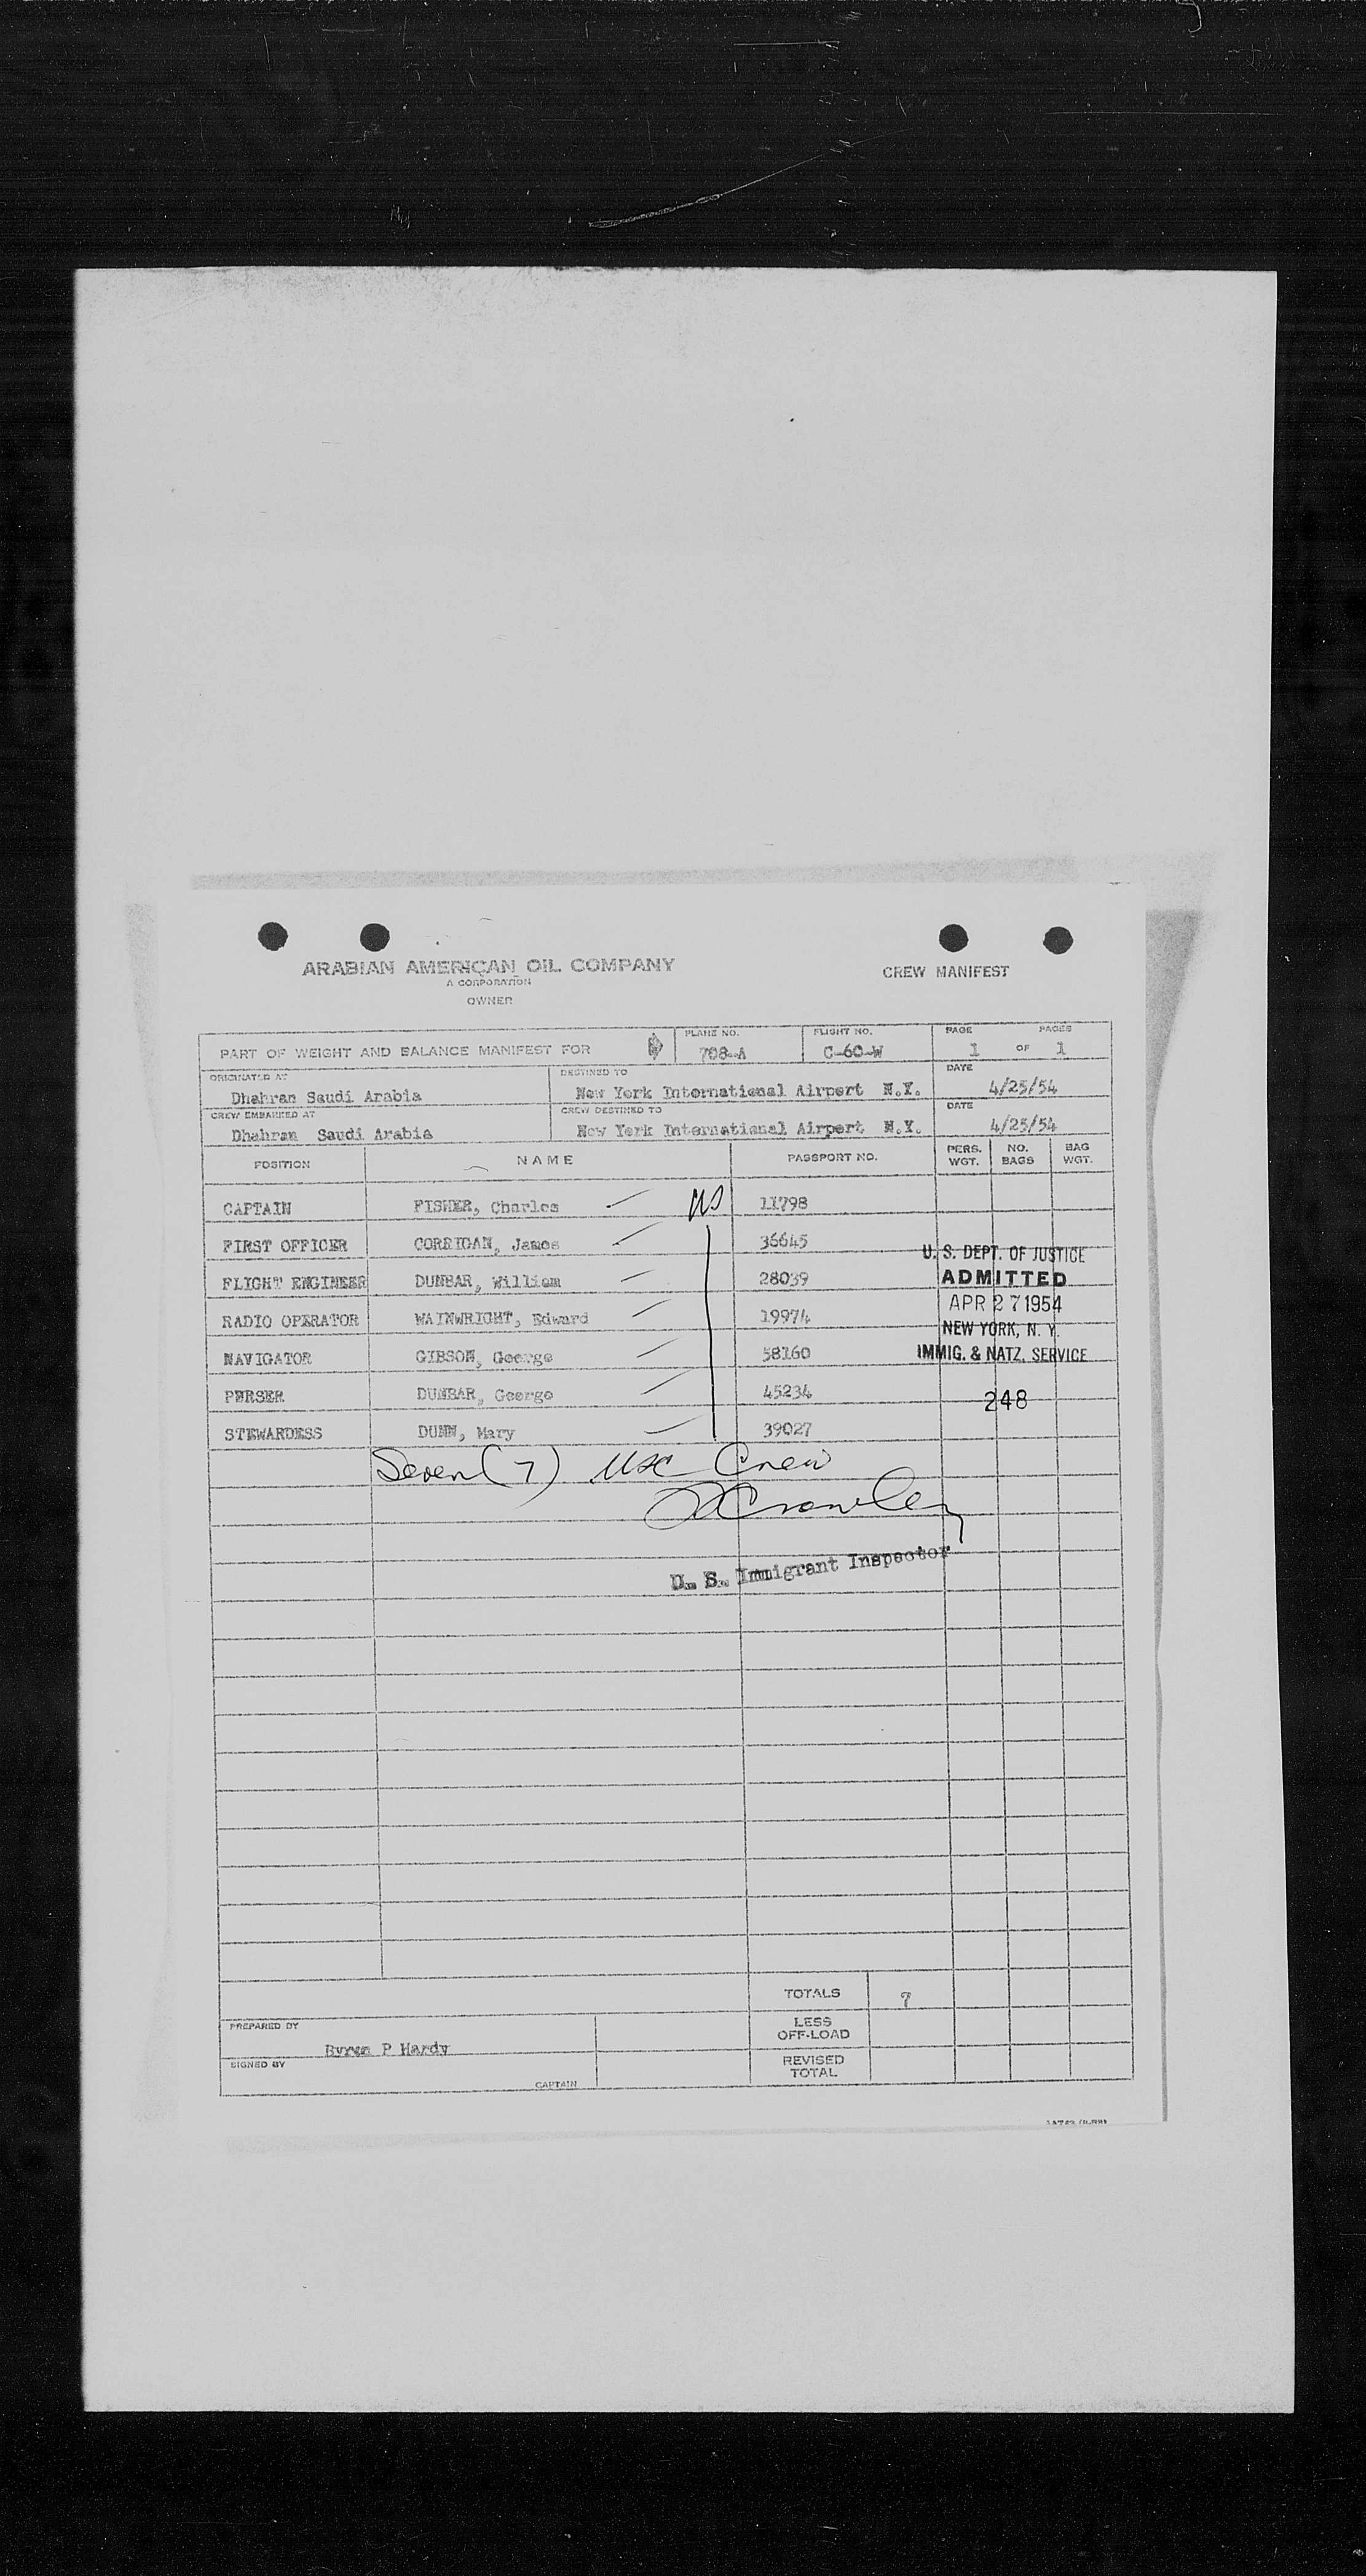 ARABIAN AMERICAN OIL COMPANY
A CORPORATION
OWNER
CREW MANIFEST
PART OF WEIGHT AND BALANCE MANIFEST FOR
PLANE NO.
708-A
FLIGHT NO.
C-60-W
PAGE PAGES
1 OF 1
ORIGINATED AT
Dhahran Saudi Arabia
DESTINED TO
New York International Airport N.Y.
DATE
4/25/54
CREW EMBARKED AT
Dhahran Saudi Arabia
CREW DESTINED TO
New York International Airport N.Y.
DATE
4/25/54
POSITION NAME PASSPORT NO. PERS. WGT. NO. BAGS BAG WGT.
CAPTAIN FISHER, Charles US 11798
FIRST OFFICER CORRIGAN, James 36645
FLIGHT ENGINEER DUNBAR, William 28039
RADIO OPERATOR WAINWRIGHT, Edward 19974
NAVIGATOR GIBSON, George 58160
PURSER DUNBAR, George 45234
STEWARDESS DUNN, Mary 39027
U. S. DEPT. OF JUSTICE
ADMITTED
APR 27 1954
NEW YORK, N. Y.
IMMIG. & NATZ. SERVICE
248
Seven (7) USC Crew
Crowley
U. S. Immigrant Inspector
TOTALS 7
LESS
OFF-LOAD
REVISED
TOTAL
PREPARED BY
Byron P Hardy
SIGNED BY
CAPTAIN